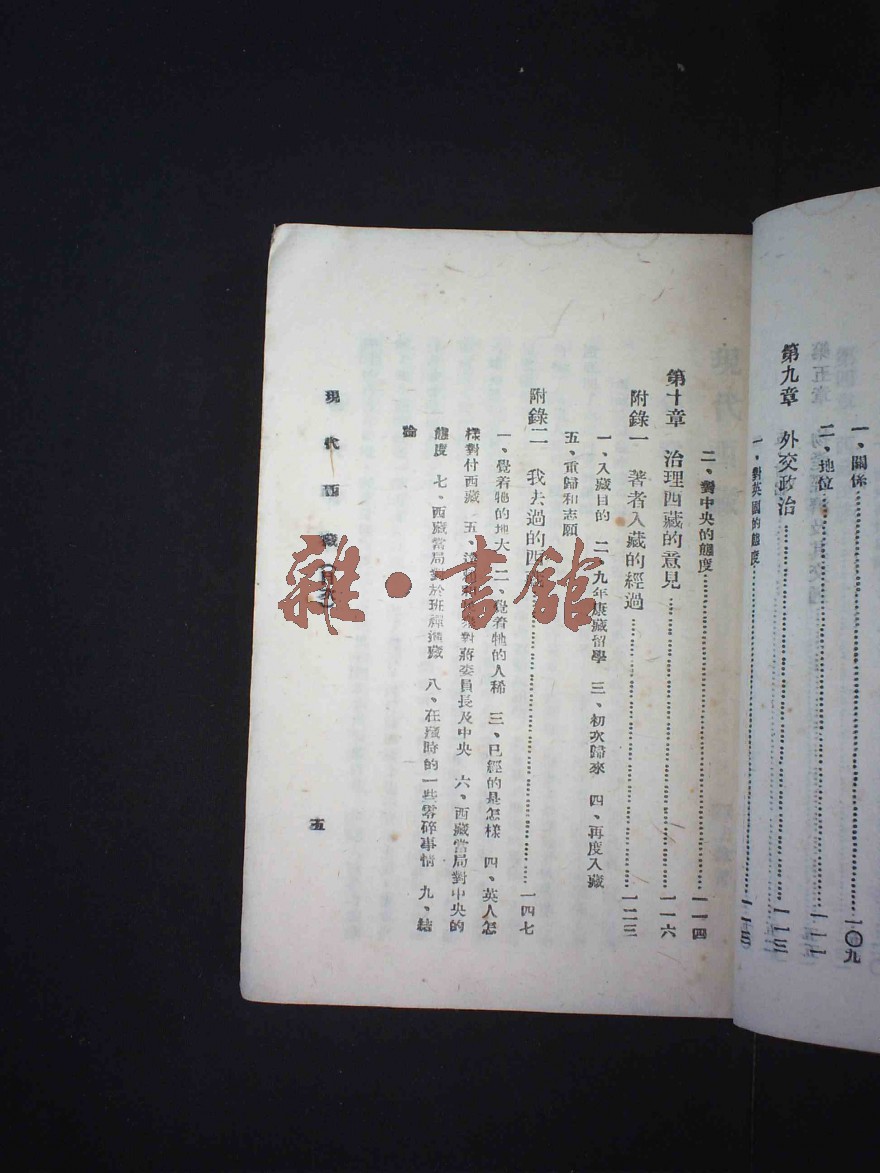 一、關係……一〇九
二、地位……一一一
第九章 外交政治……一一三
一、對英國的態度……一一三
二、對中央的態度……一一四
第十章 治理西藏的意見……一一六
附錄一 著者入藏的經過……一二三
一、入藏目的 二、九年康藏留學 三、初次歸來 四、再度入藏
五、重歸和志願
附錄二 我去過的西……一四七
一、覺着牠的地大 二、覺着牠的人稀 三、已經的是怎樣 四、英人怎
樣對付西藏 五、對蔣委員長及中央 六、西藏當局對中央的
態度 七、西藏當局對於班禪進藏 八、在藏時的一些零碎事情 九、結
論
現代西藏(目次)
五
雜·書館